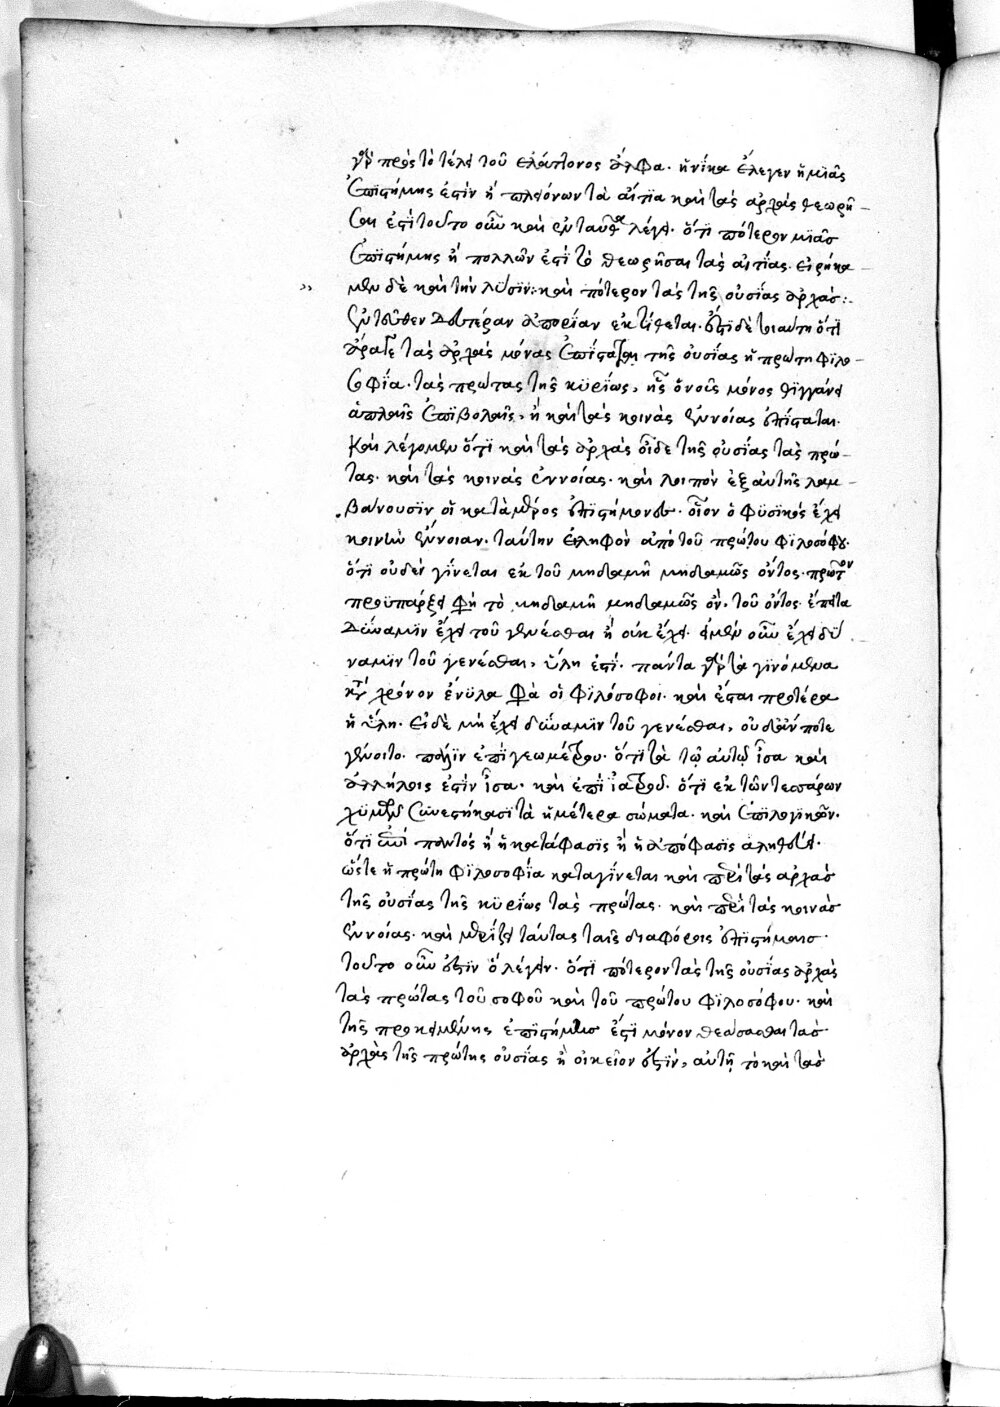 γὰρ πρὸς τὸ τέλει τοῦ ἐλάττονος ἄλφα. ἡνίκα ἔλεγεν ἢ μϊᾶς
ἐπϊστήμης ἐστὶν ἢ πλειόνων τὰ αἴτϊα καὶ τὰς ἀρχὰς θεωρῆ-
σαι ἐπὶ τοῦτο οὖν καὶ ἐνταῦθα λέγει. ὅτϊ πότερον μϊᾶς
ἐπϊστήμης ἢ πολλῶν ἐστὶ τὸ θεωρῆσαι τὰς αἰτίας. εἰρήκα-
μεν δὲ καὶ τὴν λύσϊν: καὶ πότερον τὰς τῆς οὐσίας ἀρχὰς:
ἐντεῦθεν δευτέραν ἀπορίαν ἐκτίθεται. ἔστϊ δὲ τοιαύτη ὅτϊ
ἆρά γε τὰς ἀρχὰς μόνας ἐπίσταται τῆς οὐσίας ἡ πρώτη φϊλο-
σοφΐα. τὰς πρώτας τῆς κϋρίως, ἧς ὁ νοῦς μόνος θϊγγάνει
ἁπλαῖς ἐπϊβολαῖς, ἢ καὶ τὰς κοινὰς ἐννοίας ἐπίσταται.
καὶ λέγομεν ὅτϊ καὶ τὰς ἀρχὰς οἶδε τῆς οὐσίας τὰς πρώ-
τας. καὶ τὰς κοινὰς ἐννοίας. καὶ λοιπὸν ἐξ αὐτῆς λαμ-
βάνουσϊν οἱ κατὰ μέρος ἐπϊστήμονες. οἷον ὁ φϋσϊκὸς ἔχει
κοινὴν ἔννοιαν. ταύτην εἰληφὼν ἀπὸ τοῦ πρώτου φϊλοσόφου.
ὅτϊ οὐδὲν γίνεται ἐκ τοῦ μηδαμῆ μηδαμῶς ὄντος. πρῶτον
προϋπάρξει φη τὸ μηδαμῆ μηδαμῶς ὂν. τοῦ ὄντος. ἔπειτα
δύναμϊν ἔχει τοῦ γενέσθαι ἢ οὐκ ἔχει. εἰ μὲν οὖν ἔχει δύ
ναμϊν τοῦ γενέσθαι, ὕλη ἐστί. πάντα γὰρ τὰ γϊνόμενα
κατὰ χρόνον ἔνϋλα φα οἱ φϊλόσοφοι. καὶ ἔσται προτέρα
ἡ ὕλη. εἰ δὲ μὴ ἔχει δύναμϊν τοῦ γενέσθαι, οὐδ' ἄν ποτε
γένοιτο. πάλϊν ἐπὶ γεωμέτρου. ὅτϊ τὰ τῷ αὐτῷ ἴσα καὶ
ἀλλήλοις ἐστὶν ἴσα. καὶ ἐπὶ ἰατροῦ. ὅτϊ ἐκ τῶν τεσσάρων
χϋμῶν συνεστήκασϊ τὰ ἡμέτερα σώματα. καὶ ἐπὶ λογϊκῶν.
ὅτϊ ἐπὶ παντὸς ἢ ἡ κατάφασϊς ἢ ἡ ἀπόφασϊς ἀληθεύει.
ὥστε ἡ πρώτη φϊλοσοφΐα καταγίνεται καὶ περὶ τὰς ἀρχὰς
τῆς οὐσίας τῆς κϋρίως τὰς πρώτας. καὶ περὶ τὰς κοινὰς
ἐννοίας. καὶ μερίζει ταύτας ταῖς διαφόροις ἐπϊστήμαις.
τοῦτο οὖν ἐστϊν ὃ λέγει. ὅτϊ πότερον τὰς τῆς οὐσίας ἀρχὰς
τὰς πρώτας τοῦ σοφοῦ καὶ τοῦ πρώτου φϊλοσόφου. καὶ
τῆς προκειμένης ἐπϊστήμης ἐστὶ μόνον θεάσασθαι τὰς
ἀρχὰς τῆς πρώτης οὐσίας ἢ οἰκεῖον ἐστϊν, αὐτῇ τὸ καὶ τὰς